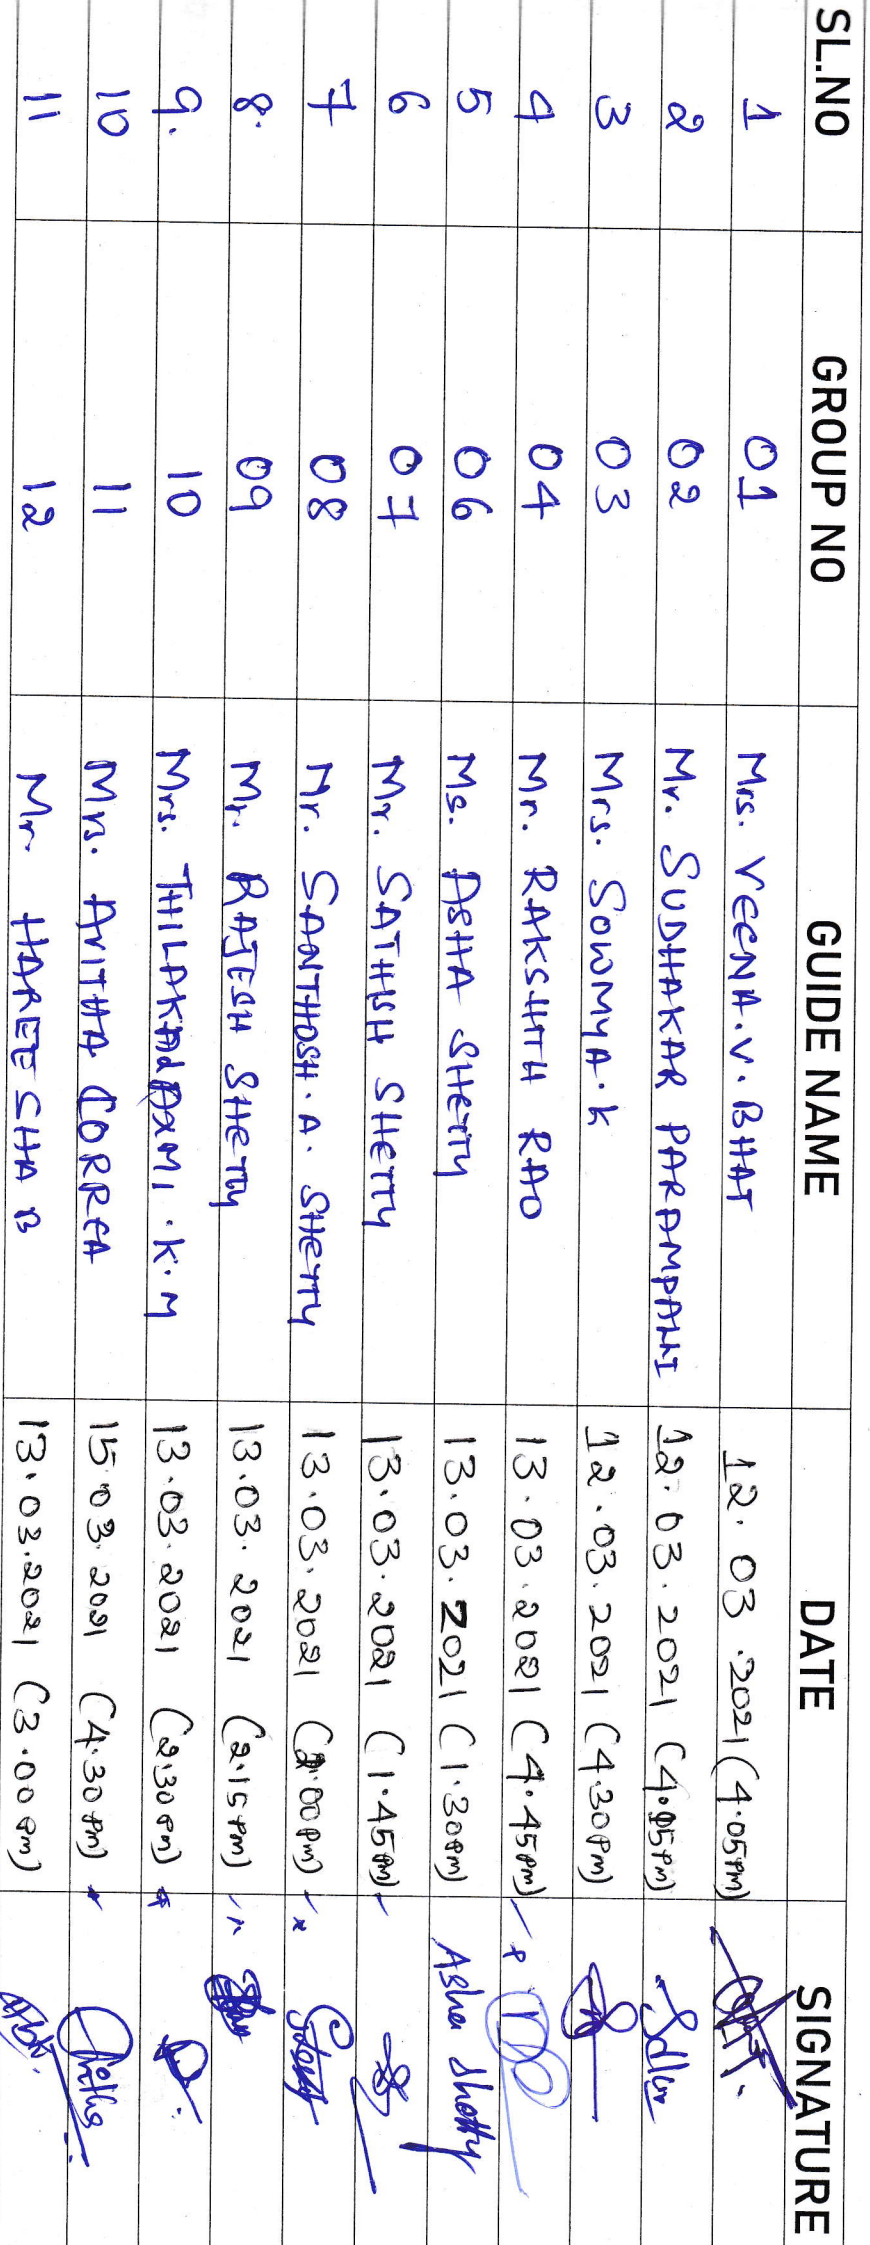 SL.NO GROUP NO GUIDE NAME DATE SIGNATURE
1 01 Mrs. VEENA.V.BHAT 12.03.2021 (4.05pm)
2 02 Mr. SUDHAKAR PARAMPALLI 12.03.2021 (4.05pm)
3 03 Mrs. SOWMYA.K 12.03.2021 (4.30pm)
4 04 Mr. RAKSHITH RAO 13.03.2021 (4.45pm)
5 06 Ms. ASHA SHETTY 13.03.2021 (1.30pm) Asha Shetty
6 07 Mr. SATHISH SHETTY 13.03.2021 (1.45pm)
7 08 Mr. SANTHOSH.A.SHETTY 13.03.2021 (2.00pm)
8. 09 Mr. RAJESH SHETTY 13.03.2021 (2.15pm)
9. 10 Mrs. 13.03.2021 (2.30pm)
10 11 Mrs. AVITHA CORREA 15.03.2021 (4.30pm)
11 12 Mr. HAREESHA B 13.03.2021 (3.00pm)